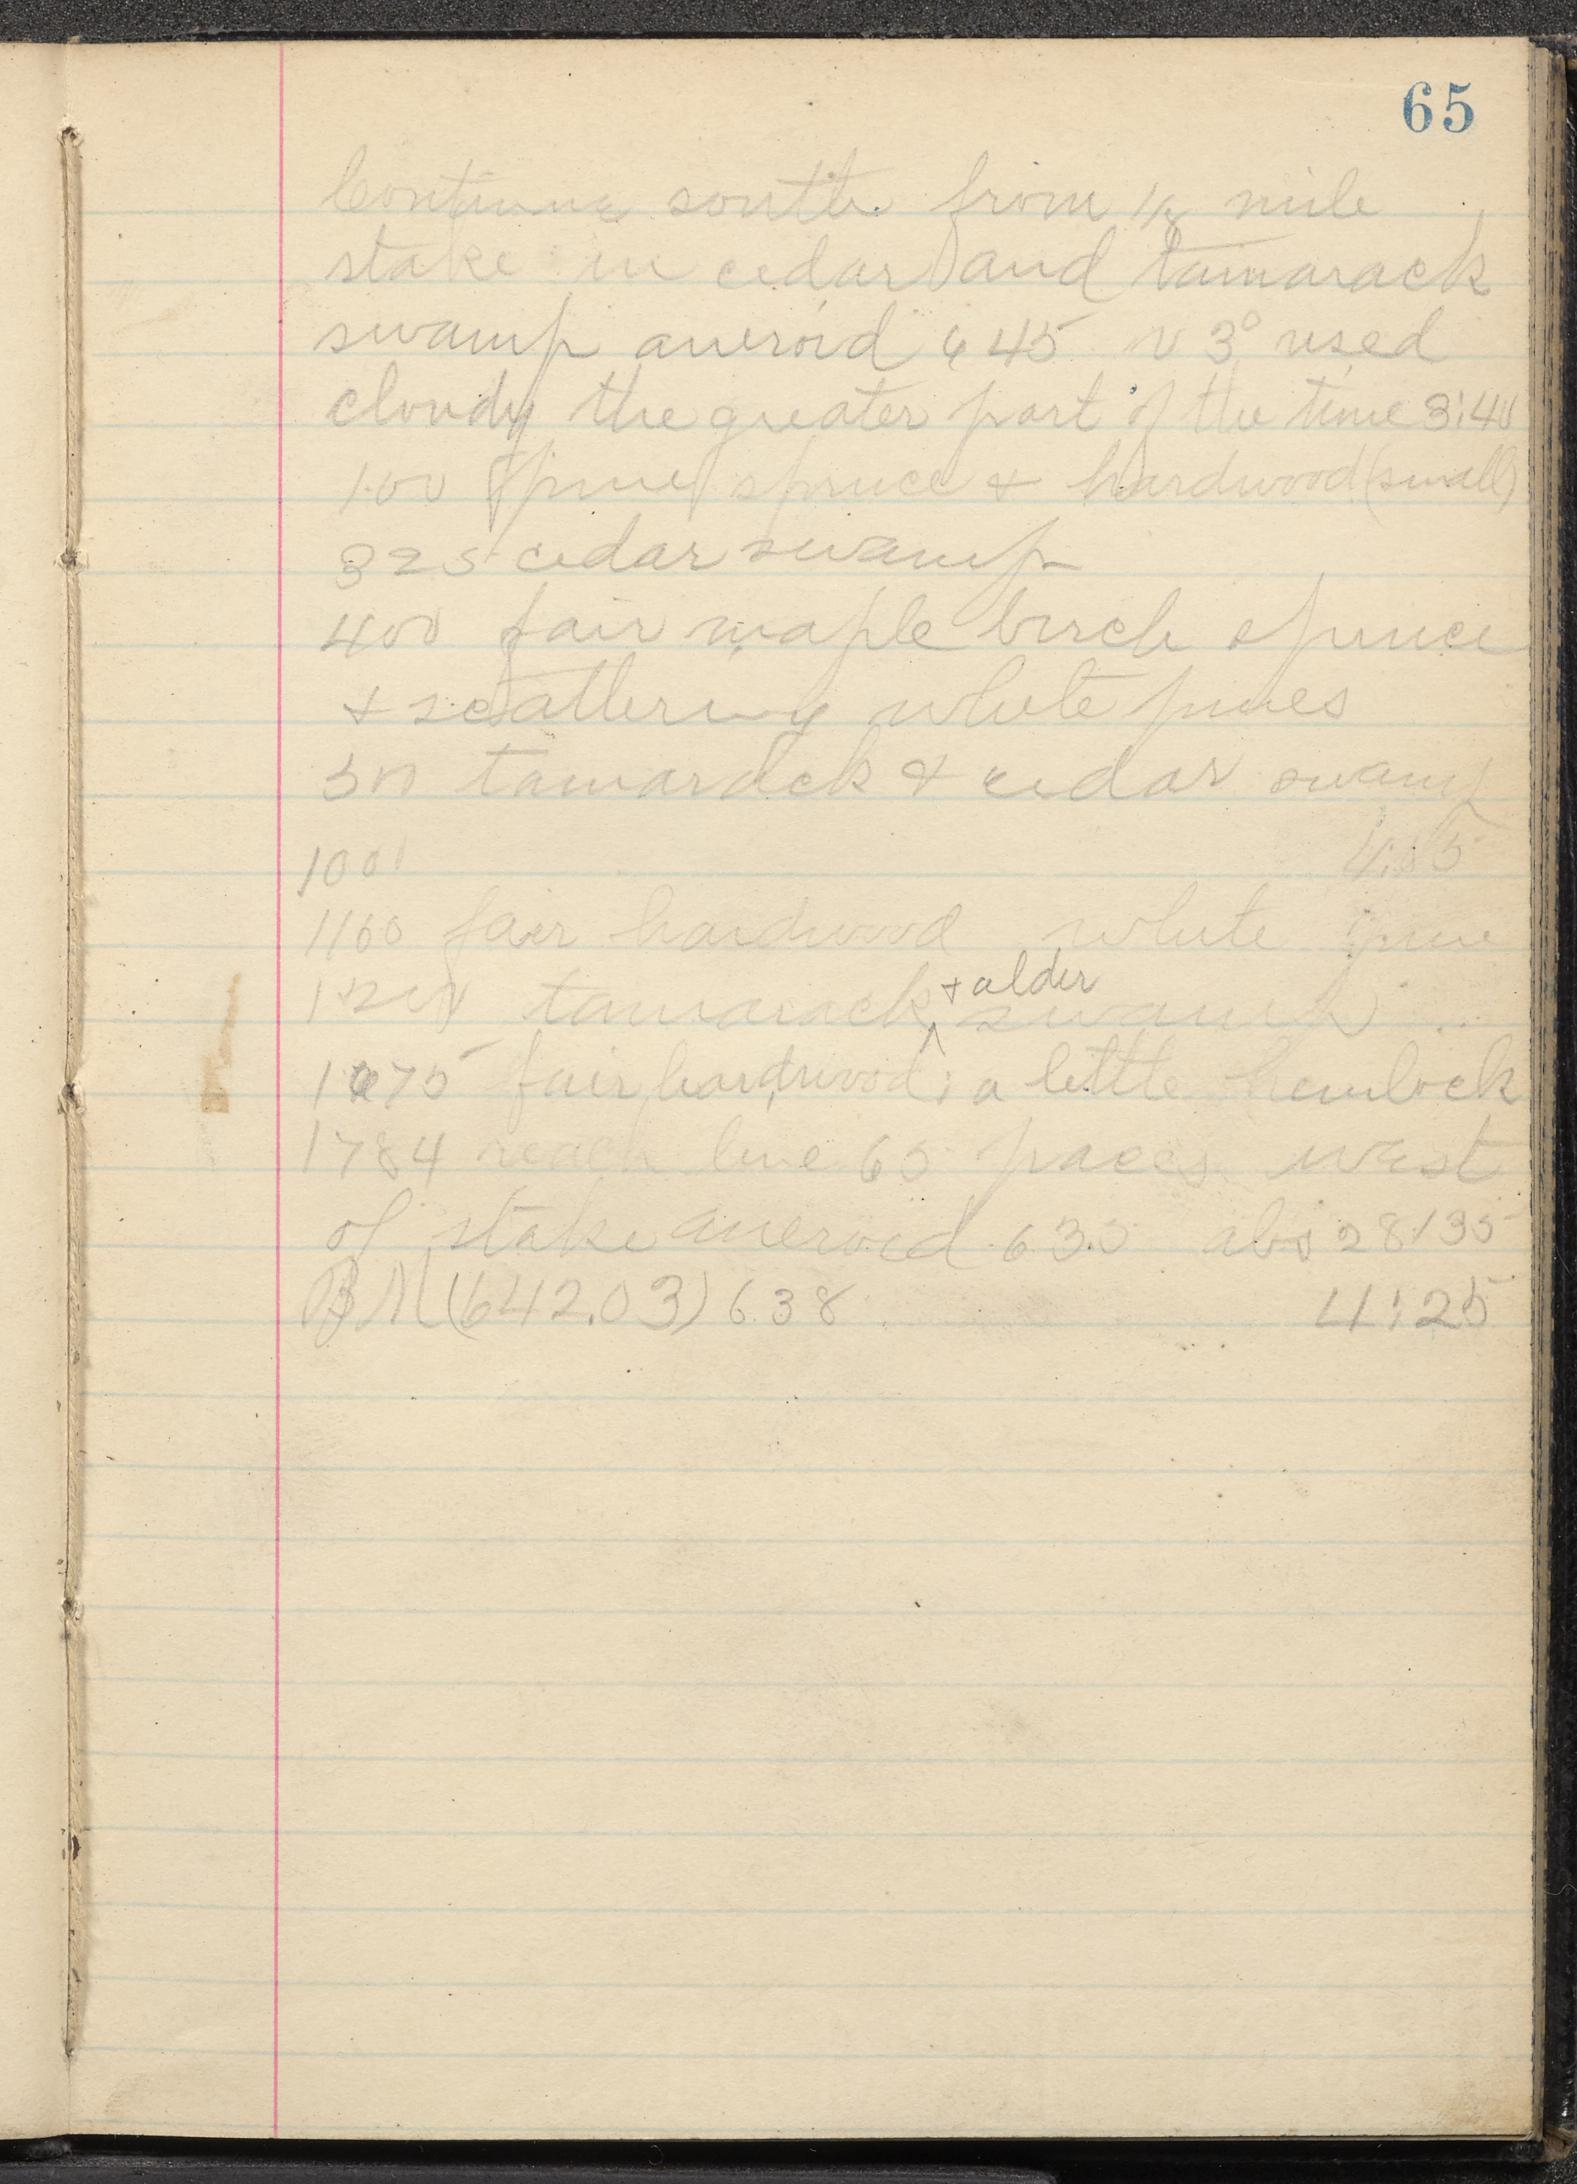 65
Continue south from 1/8 mile
stake in cedar and tamarack
swamp aneroid 645 v 3° used
cloudy the greater part of the time 3:40
100 pine spruce & hardwood (small)
325 cedar swamp
400 fair maple birch spruce
& scattering white pines
tamarack & cedar swamp
1000 4:05
1160 fair hardwood white pine
1200 tamarack & alder swamp
1675 fair hardwood; a little hemlock
1784 reach line 65 paces west
of stake aneroid 635 abs 28.135
BM (642.03) 638 4:25